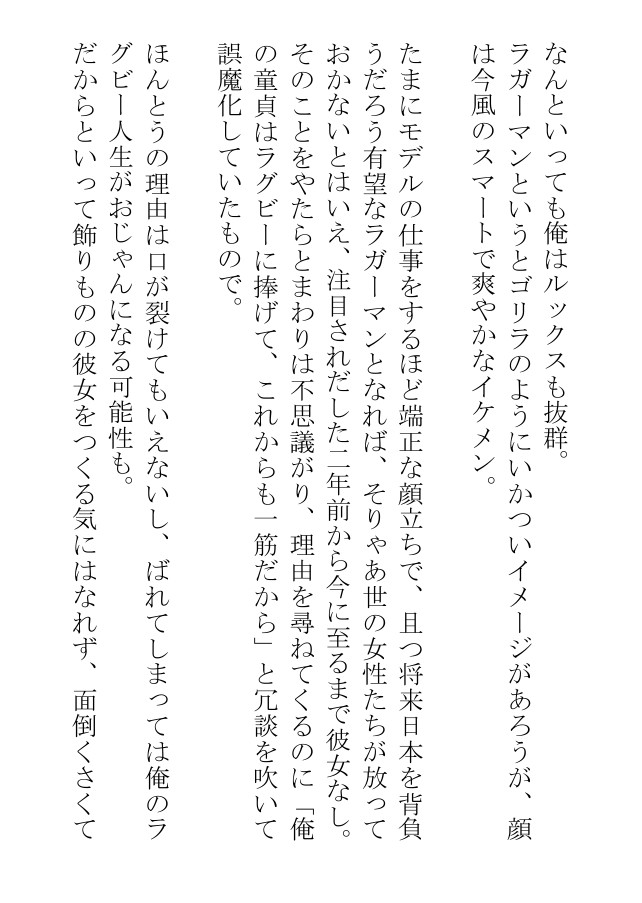 なんといっても俺はルックスも抜群。
ラガーマンというとゴリラのようにいかついイメージがあろうが、顔
は今風のスマートで爽やかなイケメン。
たまにモデルの仕事をするほど端正な顔立ちで、且つ将来日本を背負
うだろう有望なラガーマンとなれば、そりゃあ世の女性たちが放って
おかないとはいえ、注目されだした二年前から今に至るまで彼女なし。
そのことをやたらとまわりは不思議がり、理由を尋ねてくるのに「俺
の童貞はラグビーに捧げて、これからも一筋だから」と冗談を吹いて
誤魔化していたもので。
ほんとうの理由は口が裂けてもいえないし、ばれてしまっては俺のラ
グビー人生がおじゃんになる可能性も。
だからといって飾りものの彼女をつくる気にはなれず、面倒くさくて